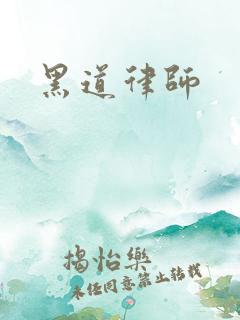 黑道律師
揭怡樂
未经同意禁止转载